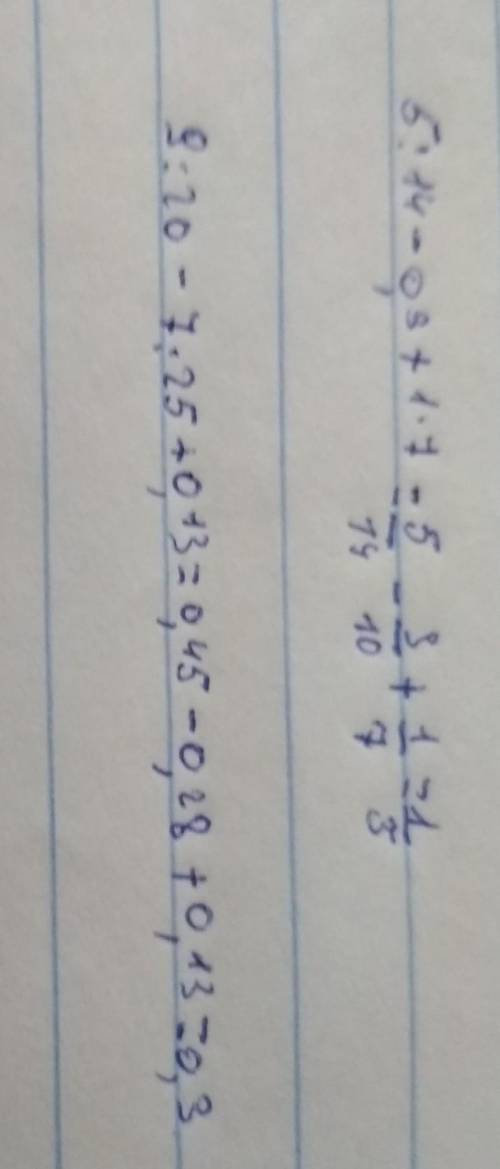 5:14-0,3+1:7=5/14-3/10+1/7=1/5
9:20-7:25+0,13=0,45-0,28+0,13=0,3